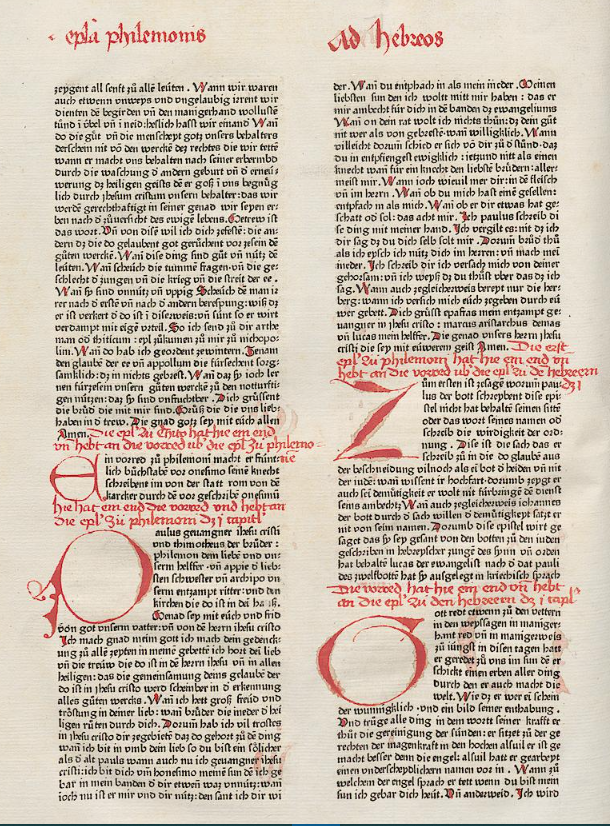 epl̄a philemonis
Ad hebreos
zeygent all senft zů allē leúten . Wann wir waren
auch etwenn vnweys vnd vngelaubig irrent wir
dienten dē begirden vn̄ den manigerhand wollusté
tůnd i ỽbel vn̄ i neid: heslich hasst wir einand Wañ
do die gůt vn̄ die menscheyt gotz vnsers behalters
derschein nit vō den werckē dez rechtes die wir tettē
wann er macht vns behalten nach seiner erbermbd
durch die waschung d andern geburt vn̄ d ernei
werung dz heiligen geists dē er goß i vns begnúg
lich durch jhesum cristum vnsern behalter: das wir
werdē gerechthaftigt in seiner gnad wir seyen er
ben nach d zůuersicht des ewigē lebens. Getrew ist
das wort. Vn̄ von disē wil ich dich zefestē: die an
dern dz die do gelaubent got
gůten werckē. Wañ dise ding sind gůt vn̄ nútz dē
leúten. Wañ scheúch die tummē fragen vn̄ die ge
schlecht d zungen vn̄ die krieg vn̄ die streit der ee .
Wañ sy sind vnnútz vn̄ vppig Scheúch dē man ir
rer nach d erstē vn̄ nach d andern berespung: wiß dz
er ist verkert d do ist i diserweys: vn̄ súnt so er wirt
verdampt mit eigē vrteil. So ich send zů dir arthe
man od thiticum : eyl zůkumen zů mir zů nichopo
lim. Wañ do hab ich geordent zewintern. Zenam
den glaubē der ee vn̄ appollum die fúrsechent sorg
samklich: dz in nichts gebrest. Wañ dz sy ioch ler
nen fúrzesein vnsern gůten werckē zů den notturfti
gen nútzen: daz sy sind vnfruchtber . Dich grússent
die brůd die mit mir sind. Grúß die die vns lieb
haben in d trew. Die gnad gotz sey mit euch allen
Amen. Die epl̄ zů thito hat hie ein end
vn̄ hebt an die vorred úb die epl̄ zů philemo
nie
Ein vorred zů philemoni macht er frúnt
lich bůchstabē vor onesimo seinē knecht
schreibent im von der statt rom von dē
karcker durch dē vor geschribē onesimū
hie hat em end die vorred vnd hebt an
die epl̄ zů philemoni dz i capitl̄
Paulus geuangner ihesu cristi
vnd thimotheus der brůder:
philemon dem liebē vnd vn
serm helffer . vn̄ appie d lieb
sten schwester vn̄ archipo vn
serm entzampt ritter: vnd den
kirchen die do ist in dei
Genad sey mit euch vnd frid
von got vnserm vatter: vn̄ von dē herrn ihesu cristo
Ich mach gnad meim gott ich mach dein gedenck
ung zů allē zeyten in meinē gebettē ich hort dei lieb
vn̄ die treúw die do ist in dē herrn ihesu vn̄ in allen
heiligen: das die gemeinsamung deins gelaubē der
do ist in jhesu cristo werd scheinber in d erkennung
alles gůten werckes. Wañ ich hett groß freid vnd
tröstung in deiner lieb: wañ brůder die ineder d hei
ligen růten durch dich. Dorum̄ hab ich vil trostes
in jhesu cristo dir zegebietē daz do gehort zů dē ding
wañ ich bit in vmb dein lieb so du bist ein sölicher
als d alt pauls wann auch nu ich geuangner jhesu
cristi: ich bit dich vm̄ honesimo meinē sun dē ich ge
bar in mein banden d dir etwen waz vnnútz: wañ
ioch nu ist er mir vnd dir nútz: den sant ich dir wi
der. Wañ du entphach in als mein ineder. Meinen
liebsten sun den ich wolt mitt mir haben : das er
mir ambecht fúr dich in dē banden dz ewangeliums
Wañ on dein rat wolt ich nichts thůn: dz dein gůt
nit wer als von gebrestē wañ willigklich. Wann
villeicht dorum̄ schied er sich vō dir zů d stund . daz
du in entpfiengest ewigklich : ietzund nitt als einen
knecht wañ fúr ein knecht den liebstē brůdern: aller
meist mir. Wann ioch wieuil mer dir: in dē fleisch
vn̄ im herrn. Wañ ob du mich hast einē gesellen:
entpfach in als mich. Wañ ob er dir etwas hat ge
schatt od sol: das acht mir. Ich paulus schreib di
se ding mit meiner hand. Ich vergilt es: nit dz ich
dir sag dz du dich selb solt mir. Dorum̄ brůd thů
als ich eysch ich nútz dich im herren: vn̄ mach mei
ineder. Ich schreib dir ich versach mich von deiner
gehorsam: vn̄ ich weyß dz du thúst vber das dz ich
sag. Wann auch zegleicherweis bereyt nur die her
berg: wann ich versich mich euch zegeben durch eú
wer gebett. Dich grússt epafras mein entzampt ge
uangner in jhesu cristo: marcus aristarchus demas
vn̄ lucas mein helffer. Die genad vnsers herrn jhesu
cristi die sey mit eúwerm geist Amen. Die erst
epl̄ zů philemoni hat hie ein end vn̄
hebt an die vorred úb die epl̄ zů dē hebreern
dz i
Zum ersten ist zesagē worum pau
lus der bott schreybent dise epi
stel nicht hat behaltē seinen sittē
oder das wort seines namen od
schreib die wirdigkeit der ord
nung. Dise ist die sach das er
schreib zů in die do glaubē aus
der beschneidung vilnoch als ei bot d heiden vn̄ nit
der iudē: wañ wissent ir hochfart: dorumb zeygt er
auch sei demútigkeit er wolt nit fúrbringē dē dienst
seins ambechtz Wañ auch zegleicherweis johannes
der bott durch d sach willen d demútigkeit satzt er
nit von seim namen. Dorumb dise epistel wirt ge
saget das sy sey gesant von den botten zů den iuden
geschriben in hebreyscher zungē des synn vn̄ orden
hat behaltē lucas der ewangelist nach d dat pauli
des zwelfbottē hat sy ausgelegt in kriechisch sprach
Die vorred hat hie ein end vn̄ hebt
an die epl̄ zů den hebreern dz i capl̄
Gott redt etwenn zů den vettern
in den weyssagen in maniger
hant red vn̄ in manigerweis
zů iúngst in disen tagen hatt
er geredet zů vns im sun dē er
schickt einen erben aller ding
durch den er auch macht die
welt. Wie dz er wer ei schein
der wunnigklich . vnd ein bild seiner enthabung .
Vnd trúge alle ding in dem wortt seiner krafft er
thůt die gereinigung der súnden: er sitzet zů der ge
rechten der magenkraft in den hochen alsuil er ist ge
macht besser denn die engel: alsuil hatt er geerbeyt
einen vnderscheydlichern namen vor in . Wann zů
welchem der engel sprach er tett wenn du bist mein
sun ich gebar dich heút. Vn̄ anderweid. Ich wird